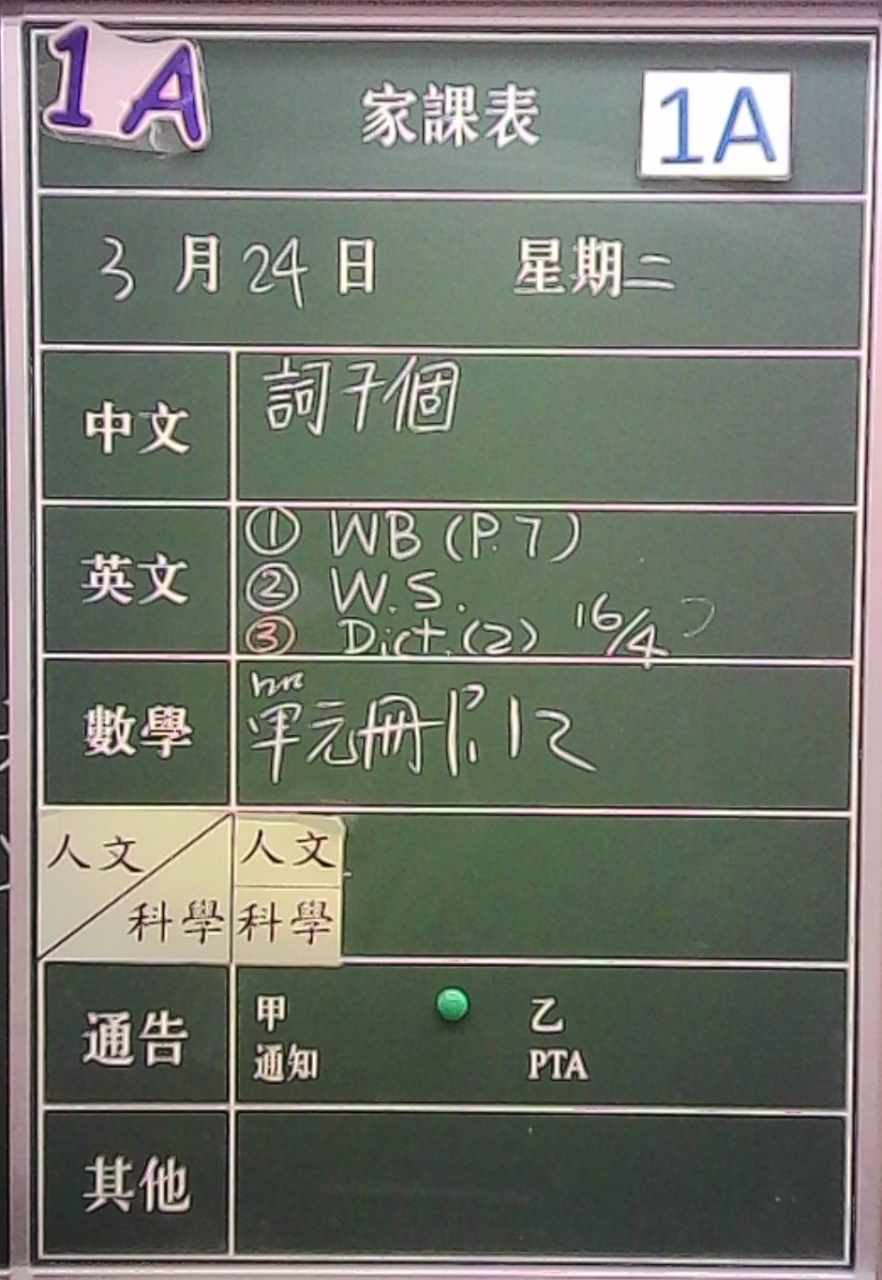 1A
家課表
1A
3月24日 星期二
中文
詞子個
英文
① WB (P.7)
② W.S.
③ Dict.(2) 16/4
數學
單元冊 P.12
人文
科學
人文
科學
通告
甲 乙
通知 PTA
其他